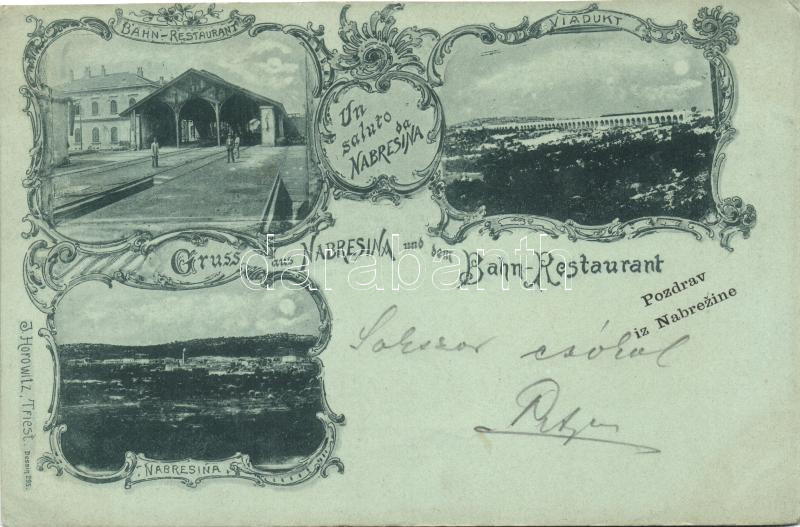 BAHN-RESTAURANT
VIADUKT
Un
saluto
da
NABRESINA
Gruss aus NABRESINA und dem Bahn-Restaurant
darabanth
Pozdrav
iz Nabrežine
Sokszor csókol
J. Horowitz, Triest.
NABRESINA